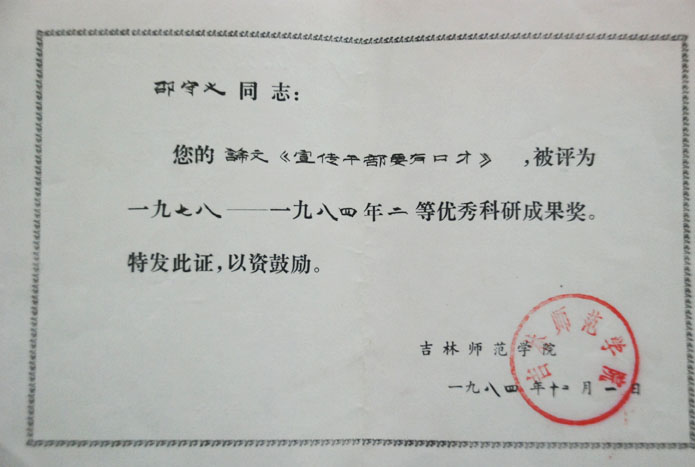 邵守义 同志:
您的 論文《宣传干部要有口才》,被评为
一九七八——一九八四年二等优秀科研成果奖。
特发此证,以资鼓励。
吉林师范学院
一九八四年十二月一日
吉林师范学院